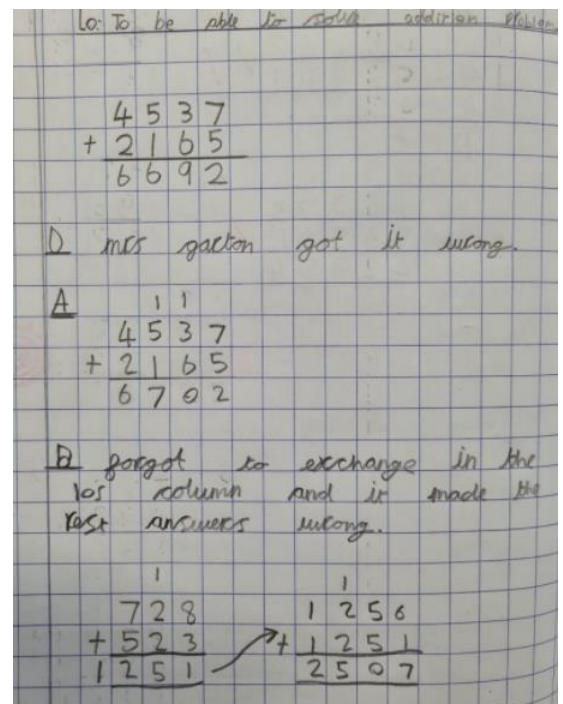 Lo: To be able to solve addition problem
4537
+ 2165
6692
D mrs gacton got it wrong.
A 1 1
4537
+ 2165
6702
E forgot to exchange in the
10s column and it made the
rest answers wrong.
1 1
728 1256
+ 523 + 1251
1251 2507